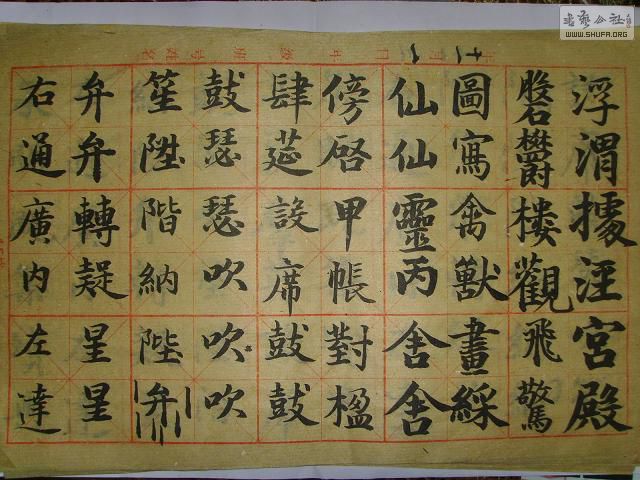 浮渭據涇宮殿
盤鬱樓觀飛驚
圖寫禽獸畫綵
仙仙靈丙舍舍
傍啓甲帳對楹
肆筵設席鼓鼓
鼓瑟瑟吹吹吹
笙陞階納陛弁
弁弁轉疑星星
右通廣内左達
书艺公社
WWW.SHUFA.ORG